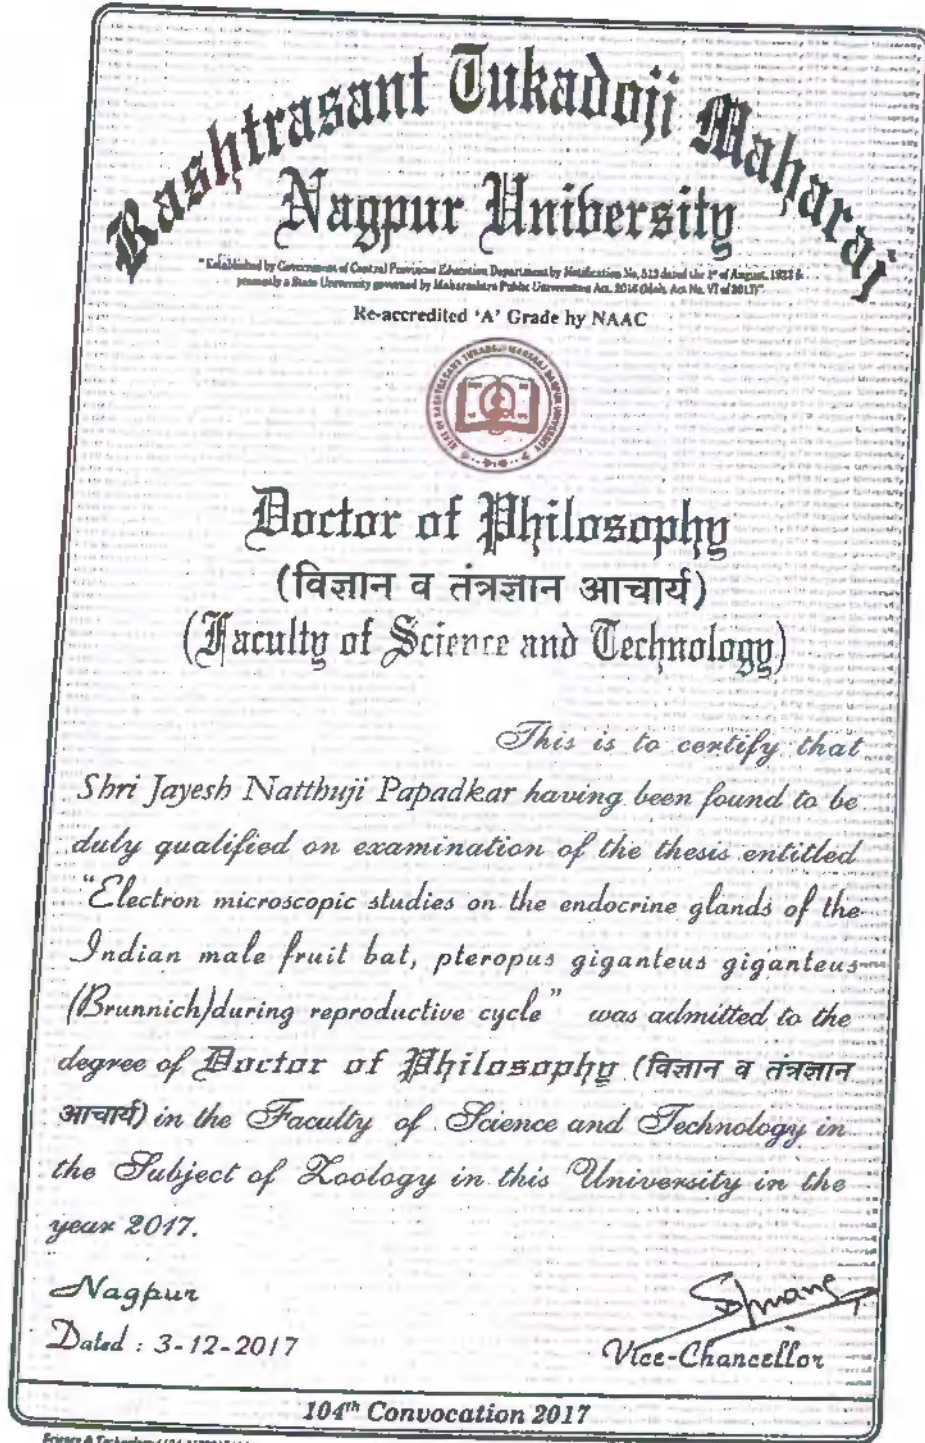 Rashtrasant Tukadoji Maharaj
Nagpur University
"Established by Government of Central Provinces Education Department by Notification No. 513 dated the 1st of August, 1923 &
presently a State University governed by Maharashtra Public Universities Act, 2016 (Mah. Act No. VI of 2017)"
Re-accredited 'A' Grade by NAAC
Doctor of Philosophy
(विज्ञान व तंत्रज्ञान आचार्य)
(Faculty of Science and Technology)
This is to certify that
Shri Jayesh Natthuji Papadkar having been found to be
duly qualified on examination of the thesis entitled
"Electron microscopic studies on the endocrine glands of the
Indian male fruit bat, pteropus giganteus giganteus
(Brunnich)during reproductive cycle" was admitted to the
degree of Doctor of Philosophy (विज्ञान व तंत्रज्ञान
आचार्य) in the Faculty of Science and Technology in
the Subject of Zoology in this University in the
year 2017.
Nagpur
Dated : 3-12-2017
Vice-Chancellor
104th Convocation 2017